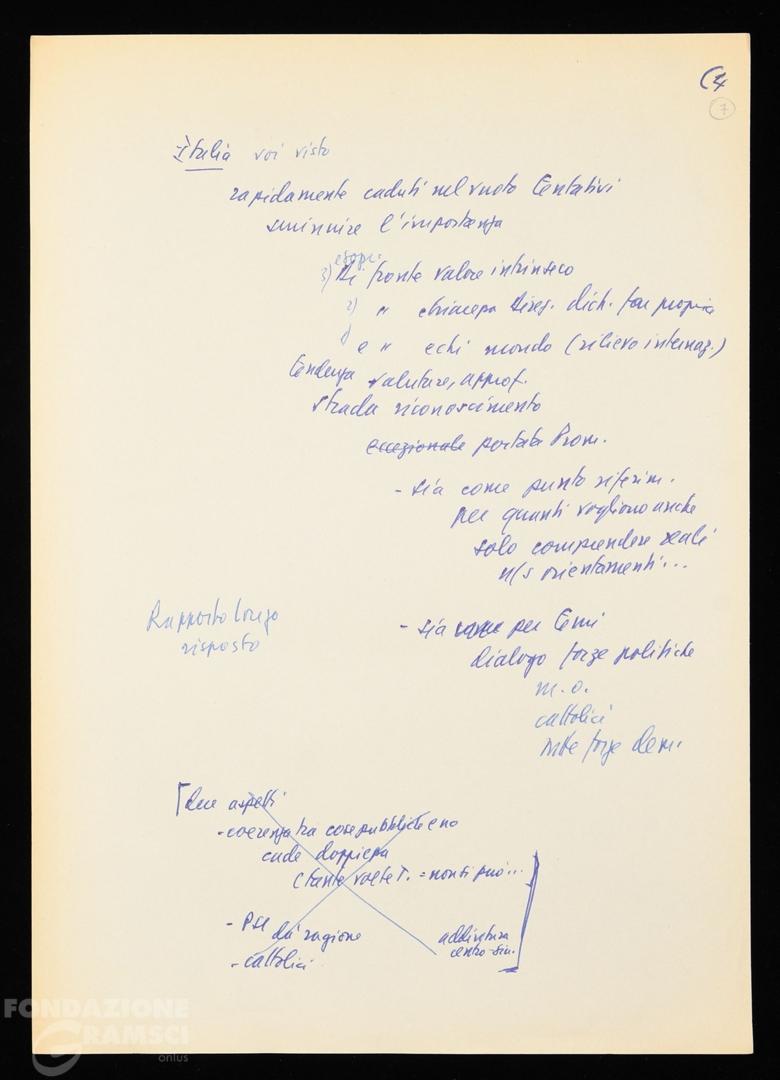 C4
7
Italia voi visto
rapidamente caduti nel vuoto tentativi
sminuire l'importanza
espr.
3) di fronte valore intrinseco
2) " chiarezza dich. fan proprie
1) e " echi mondo (rilievo internaz.)
tendenza valutare, approf.
strada riconoscimento
eccezionale portata Prom.
- sia come punto riferim.
per quanti vogliono anche
solo comprendere reali
n/s orientamenti...
Rapporto Longo
risposto
- sia come per temi
dialogo forze politiche
m. o.
cattolici
forze dem.
due aspetti
- coerenza tra cose pubbliche e no
cade doppiezza
(tante volte T. = non si può...
- PSI
dà ragione
- cattolici
addirittura
centro-sin.
FONDAZIONE
GRAMSCI
onlus